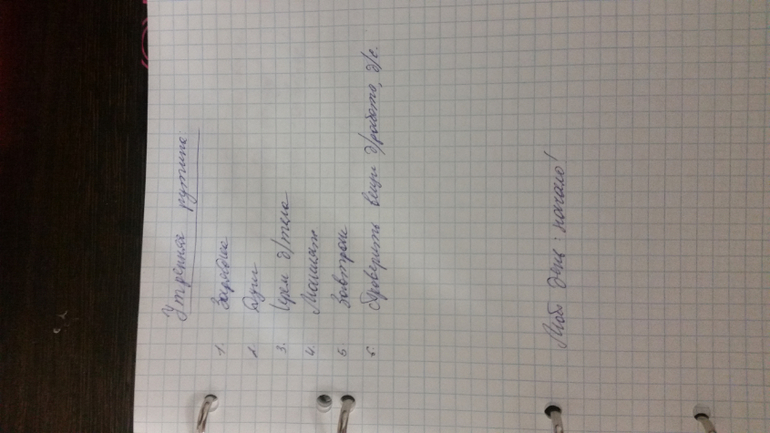 Утренняя рутина
1. Зарядка
2. Душ
3. Крем д/тела
4. Макияж
5 Завтрак
6. Проверить вещи д/работы, д/с.
Мой день: начало!